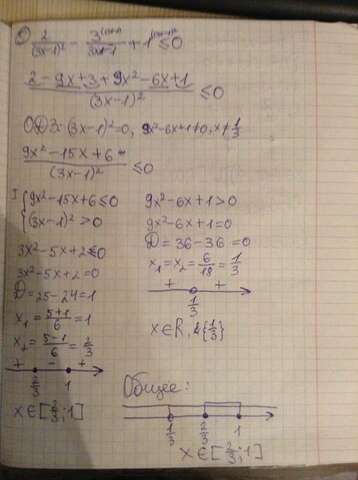 ① 2/(3x-1)² - 3^(3x-1)/(3x-1) + 1^((3x-1)²) ≤0
(2-9x+3+9x²-6x+1)/(3x-1)² ≤0
ОДЗ: (3x-1)²=0, 9x²-6x+1≠0, x≠1/3
(9x²-15x+6)/(3x-1)² ≤0
I {9x²-15x+6≤0
(3x-1)²>0
3x²-5x+2≤0
3x²-5x+2=0
D=25-24=1
x₁=(5+1)/6=1
x₂=(5-1)/6=2/3
+ - +
2/3 1
x∈[2/3;1]
9x²-6x+1>0
9x²-6x+1=0
D=36-36=0
x₁=x₂=6/18=1/3
+ +
1/3
x∈R, {1/3}
Общее:
1/3 2/3 1
x∈[2/3;1]